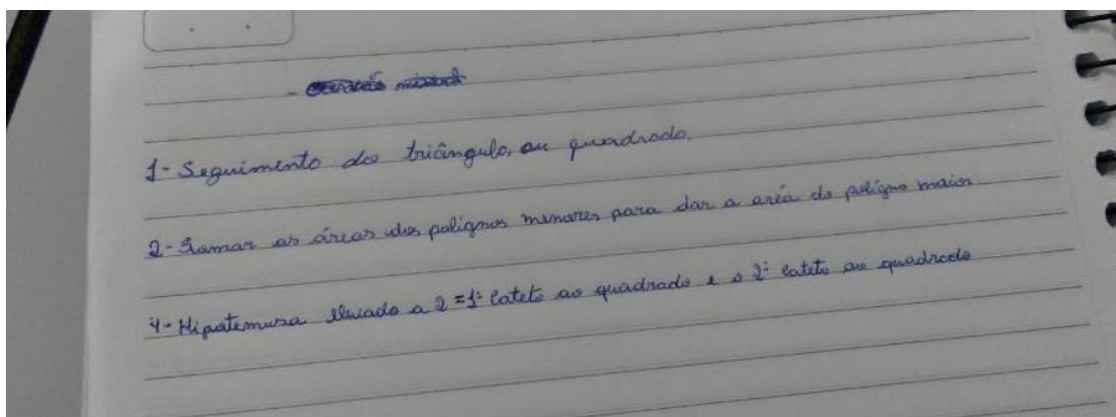 1- Seguimento do triângulo, ou quadrado.
2- Somar as áreas dos polignos menores para dar a aréa do polígno maior
4- Hipotemusa elevado a 2 = 1º cateto ao quadrado e o 2º cateto ao quadrado